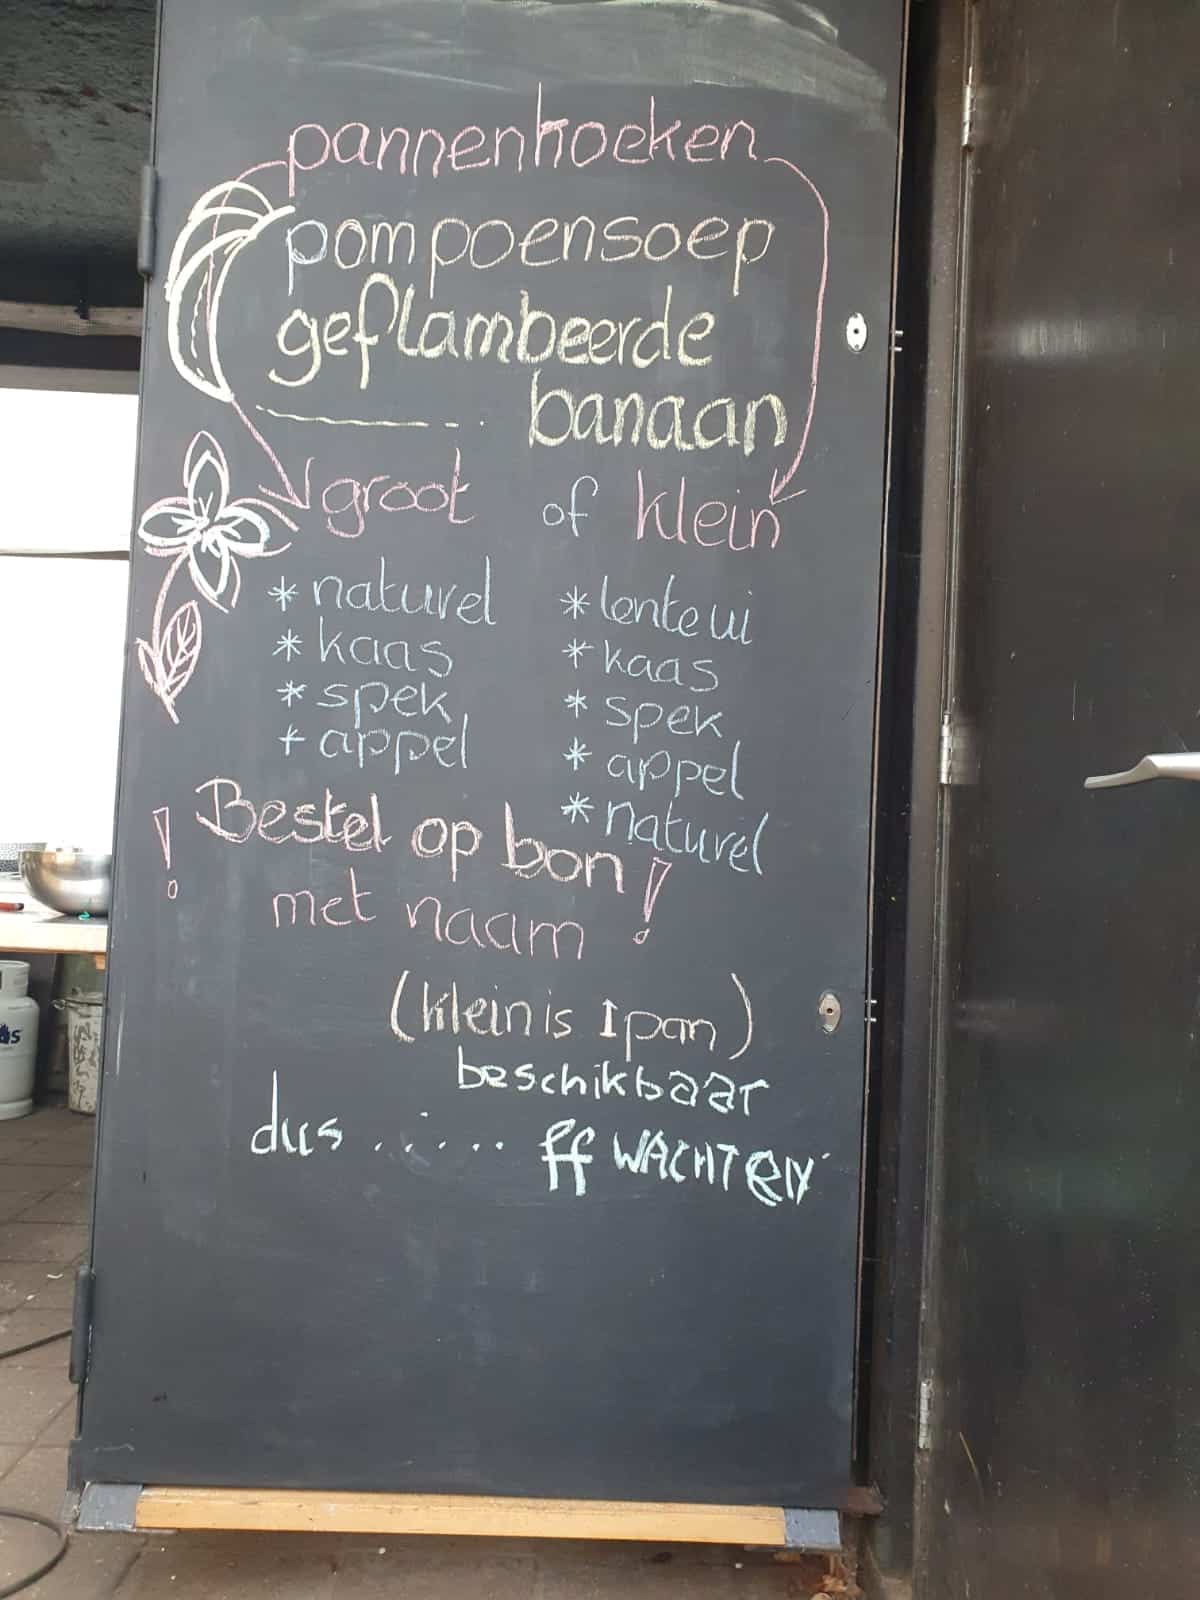 pannenkoeken
pompoensoep
geflambeerde
banaan
groot of klein
* naturel
* kaas
* spek
+ appel
* lente ui
* kaas
* spek
* appel
* naturel
! Bestel op bon !
met naam
(klein is 1 pan)
beschikbaar
dus ...... ff WACHTEN